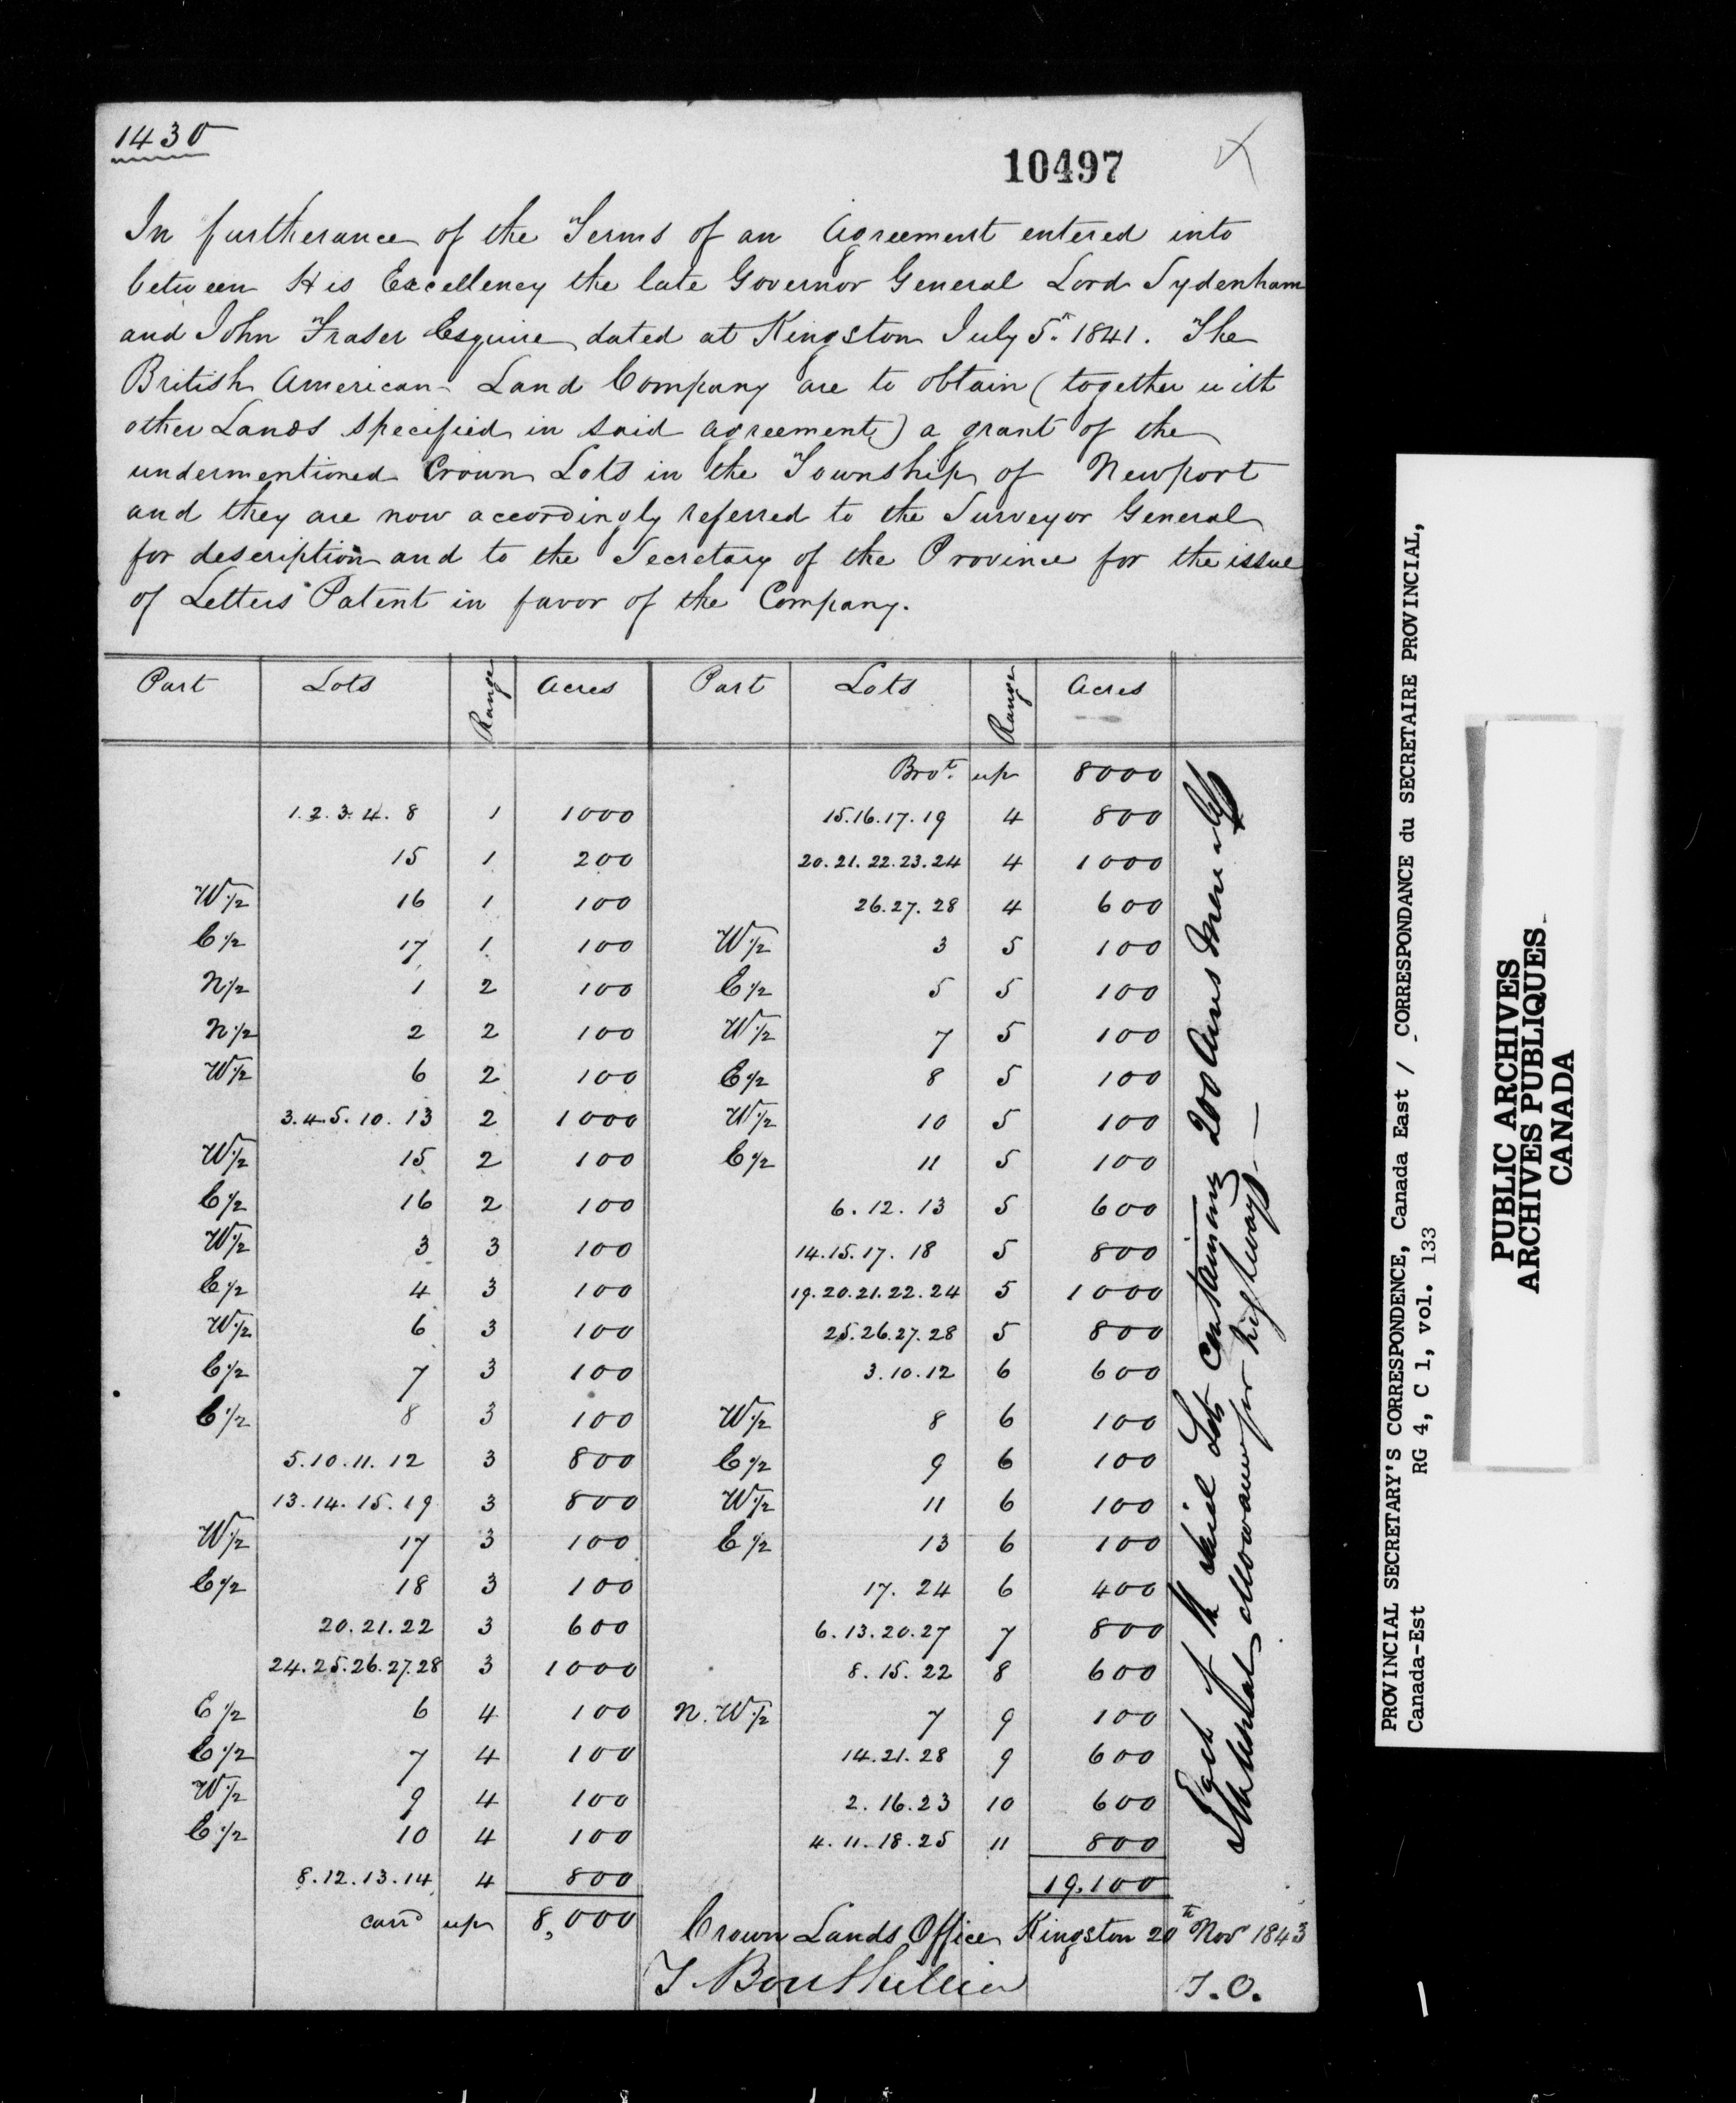 1430
10497
In furtherance of the Terms of an Agreement entered into
between His Excellency the late Governor General Lord Sydenham
and John Fraser Esquire dated at Kingston July 5th 1841. The
British American Land Company are to obtain (together with
other Lands specified in said agreement) a grant of the
undermentioned Crown Lots in the Township of Newport
and they are now accordingly referred to the Surveyor General
for description and to the Secretary of the Province for the issue
of Letters Patent in favor of the Company.
Part Lots Range Acres Part Lots Range Acres
Brot. up 8000
1.2.3.4.8 1 1000 15.16.17.19 4 800
15 1 200 20.21.22.23.24 4 1000
W½ 16 1 100 26.27.28 4 600
E½ 17 1 100 W½ 3 5 100
N½ 1 2 100 E½ 5 5 100
N½ 2 2 100 W½ 7 5 100
W½ 6 2 100 E½ 8 5 100
3.4.5.10.13 2 1000 W½ 10 5 100
W½ 15 2 100 E½ 11 5 100
E½ 16 2 100 6.12.13 5 600
W½ 3 3 100 14.15.17.18 5 800
E½ 4 3 100 19.20.21.22.24 5 1000
W½ 6 3 100 25.26.27.28 5 800
E½ 7 3 100 3.10.12 6 600
E½ 8 3 100 W½ 8 6 100
5.10.11.12 3 800 E½ 9 6 100
13.14.15.19 3 800 W½ 11 6 100
W½ 17 3 100 E½ 13 6 100
E½ 18 3 100 17.24 6 400
20.21.22 3 600 6.13.20.27 7 800
24.25.26.27.28 3 1000 8.15.22 8 600
E½ 6 4 100 N.W½ 7 9 100
E½ 7 4 100 14.21.28 9 600
W½ 9 4 100 2.16.23 10 600
E½ 10 4 100 4.11.18.25 11 800
8.12.13.14 4 800 19.100
carrd up 8,000
Crown Lands Office Kingston 20th Novr 1843
T. Bouthillier
T.O.
Each of the said Lots containing 200 Acres more or less
and allowance for highways.—
PROVINCIAL SECRETARY'S CORRESPONDENCE, Canada East / CORRESPONDANCE du SECRETAIRE PROVINCIAL,
Canada-Est RG 4, C 1, vol. 133
PUBLIC ARCHIVES
ARCHIVES PUBLIQUES
CANADA